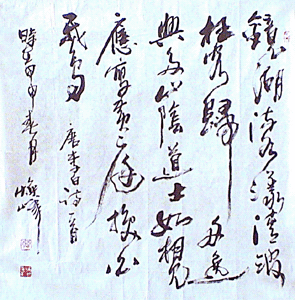 鏡湖流水漾清波
狂客歸舟逸
興多山陰道士如相見
應寫黃庭換白
鵝 唐李白詩一首
時在甲申春月